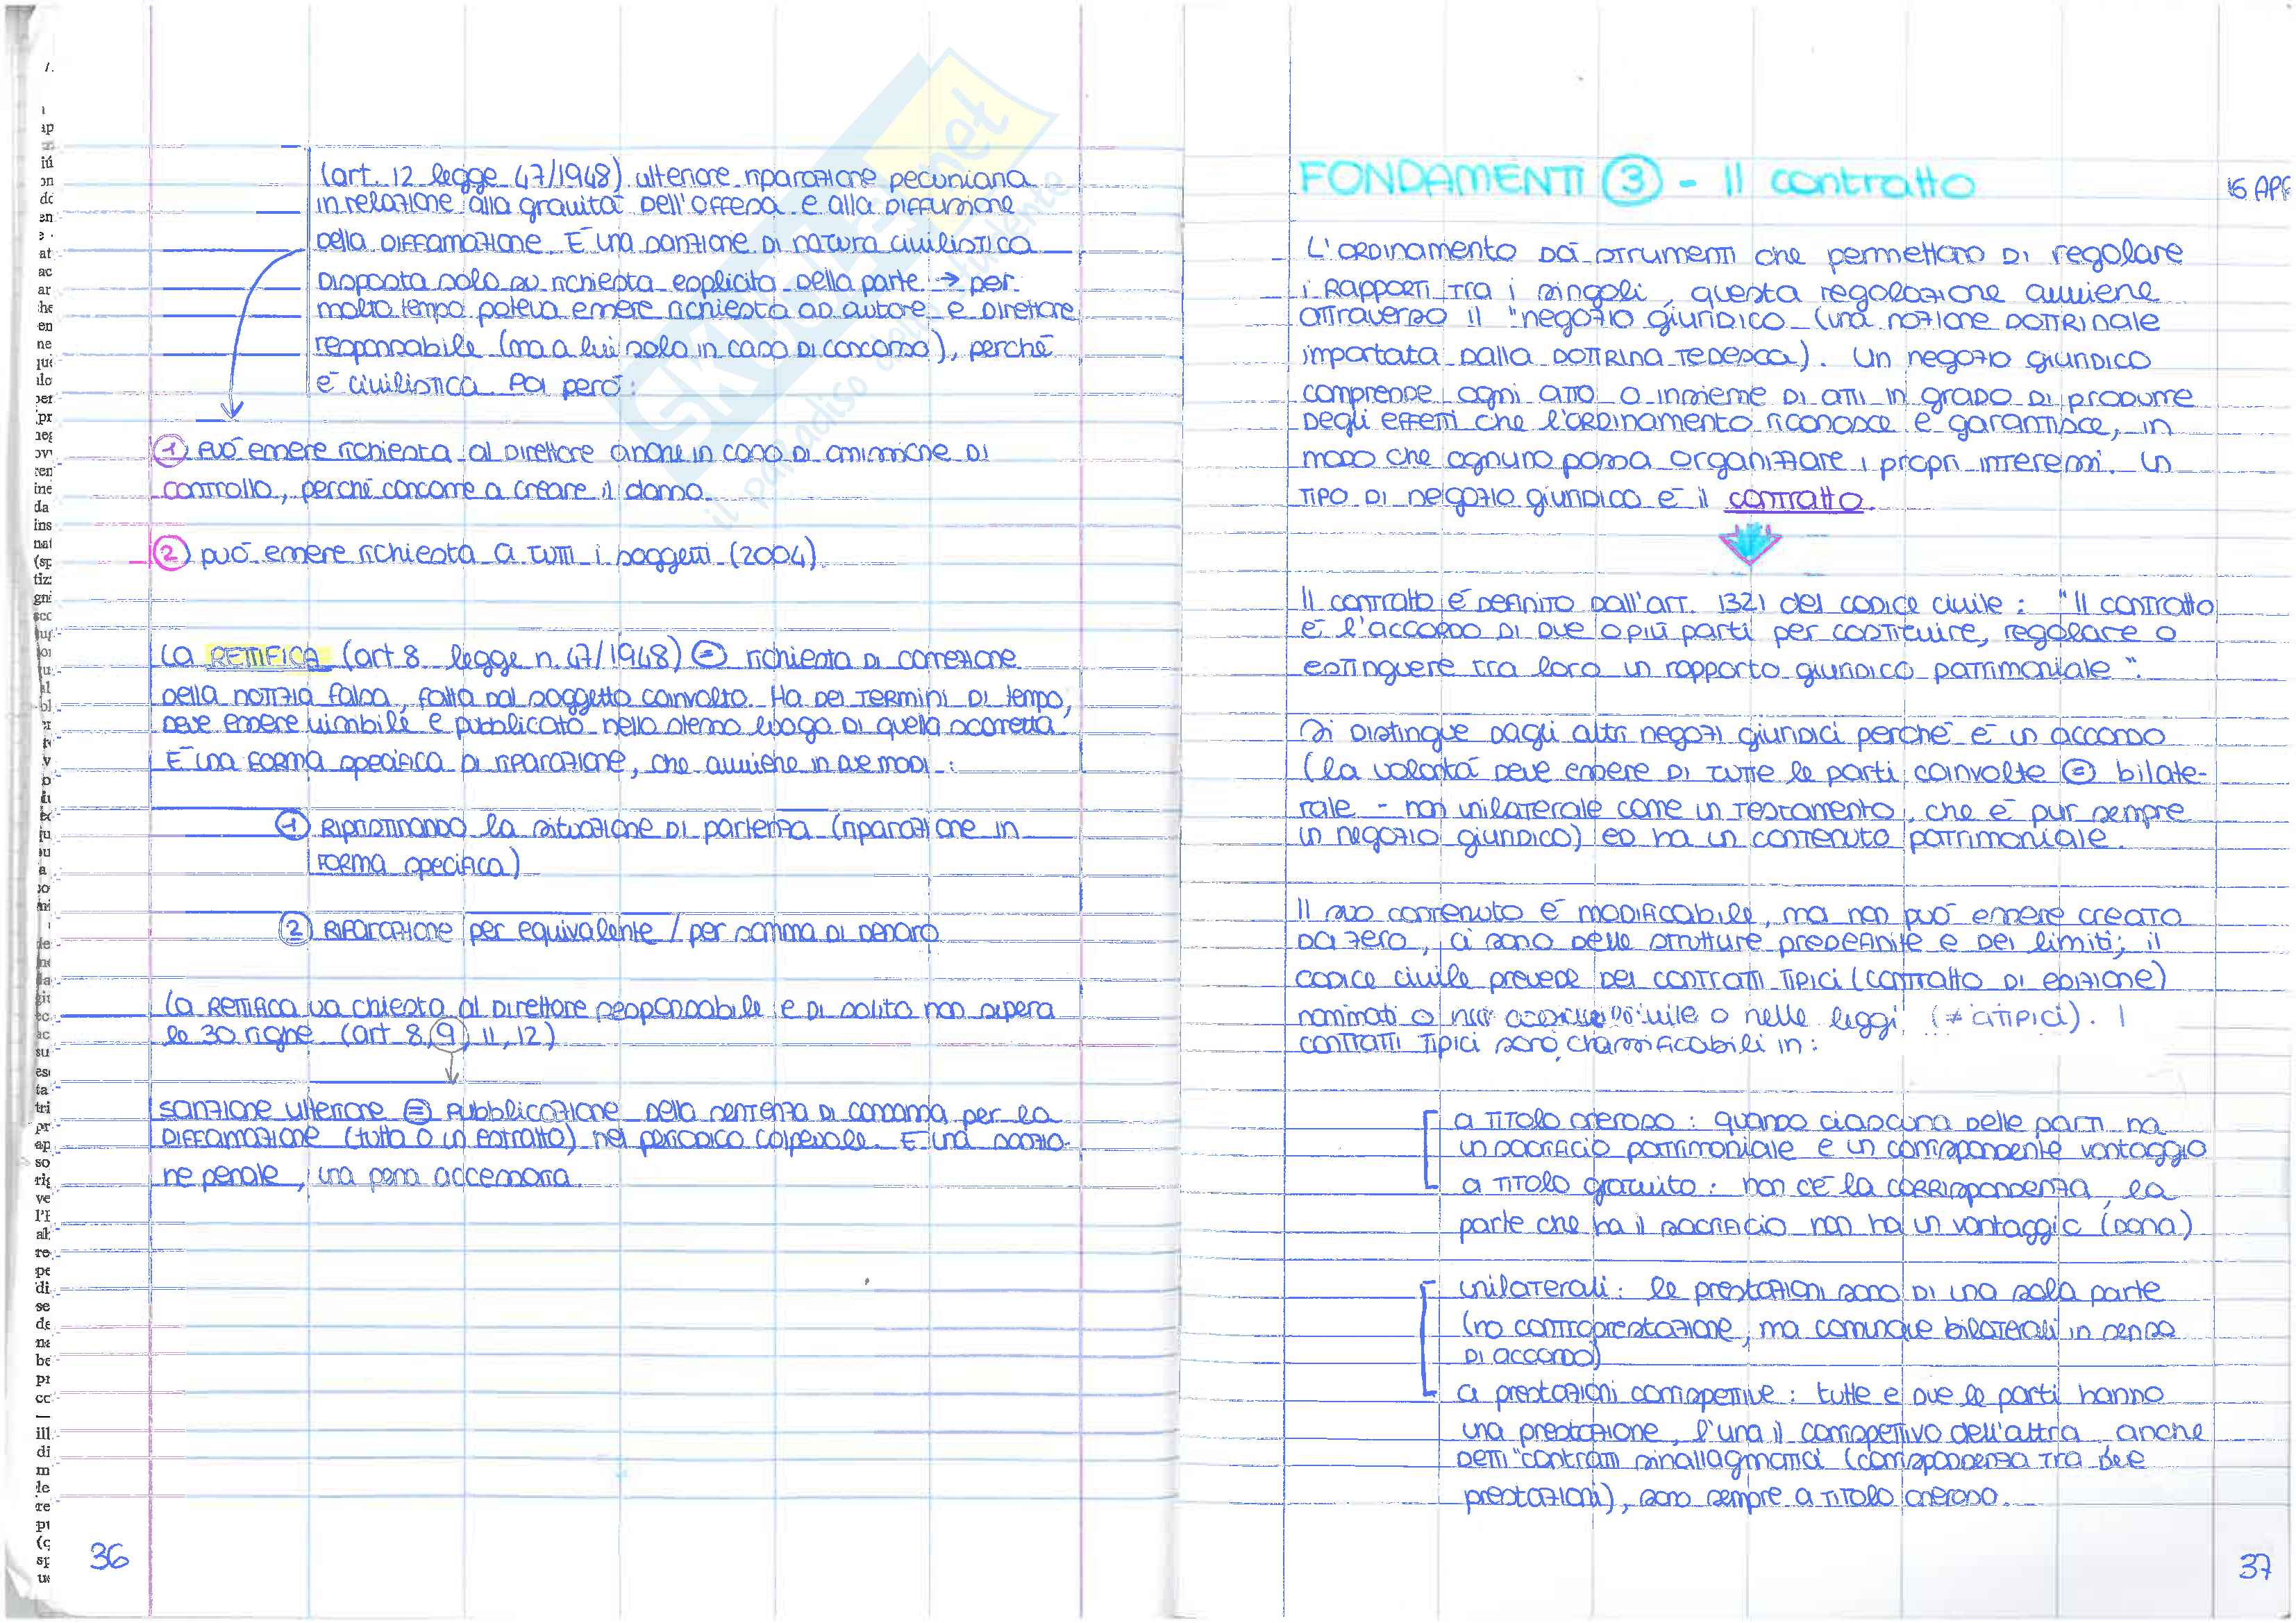 (art. 12 legge 47/1948) ulteriore riparazione pecuniaria
in relazione alla gravità dell'offesa e alla diffusione
della diffamazione. È una sanzione di natura civilistica
disposta solo su richiesta esplicita della parte → per
molto tempo poteva essere richiesta ad autore e direttore
responsabile (ma a lui solo in caso di concorso), perché
è civilistica. Poi però:
1 può essere richiesta al direttore anche in caso di omissione di
controllo, perché concorre a creare il danno.
2 può essere richiesta a tutti i soggetti (2004).
La RETTIFICA (art 8 legge n. 47/1948) = richiesta di correzione
della notizia falsa, fatta dal soggetto coinvolto. Ha dei termini di tempo,
deve essere visibile e pubblicato nello stesso luogo di quella scorretta.
È una forma specifica di riparazione, che avviene in due modi:
1 Ripristinando la situazione di partenza (riparazione in
forma specifica)
2 Riparazione per equivalente / per somma di denaro
La rettifica va chiesta al direttore responsabile e di solito non supera
le 30 righe (art 8, 9, 11, 12)
Sanzione ulteriore = pubblicazione della sentenza di condanna per la
diffamazione (tutta o un estratto) nel periodico colpevole. È una sanzio-
ne penale, una pena accessoria.
36
Skuola.net
il paradiso dello studente
FONDAMENTI 3 - Il contratto
L'ordinamento dà strumenti che permettono di regolare
i rapporti tra i singoli, questa regolazione avviene
attraverso il "negozio giuridico (una nozione dottrinale
importata dalla dottrina tedesca). Un negozio giuridico
comprende ogni atto o insieme di atti in grado di produrre
degli effetti che l'ordinamento riconosce e garantisce, in
modo che ognuno possa organizzare i propri interessi. Un
tipo di negozio giuridico è il contratto.
Il contratto è definito dall'art. 1321 del codice civile: "Il contratto
è l'accordo di due o più parti per costituire, regolare o
estinguere tra loro un rapporto giuridico patrimoniale".
Si distingue dagli altri negozi giuridici perché è un accordo
(la volontà deve essere di tutte le parti coinvolte = bilate-
rale - non unilaterale come un testamento, che è pur sempre
un negozio giuridico) ed ha un contenuto patrimoniale.
Il suo contenuto è modificabile, ma non può essere creato
da zero, ci sono delle strutture predefinite e dei limiti; il
codice civile prevede dei contratti tipici (contratto di edizione)
nominati o nelle leggi (≠ atipici). I
contratti tipici sono classificabili in:
a titolo oneroso: quando ciascuna delle parti ha
un sacrificio patrimoniale e un corrispondente vantaggio
a titolo gratuito: non c'è la corrispondenza, la
parte che ha il sacrificio non ha un vantaggio (dona)
unilaterali: le prestazioni sono di una sola parte
(no controprestazione, ma comunque bilaterali in senso
di accordo)
a prestazioni corrispettive: tutte e due le parti hanno
una prestazione, l'una il corrispettivo dell'altra, anche
detti "contratti sinallagmatici (corrispondenza tra due
prestazioni), sono sempre a titolo oneroso.
37